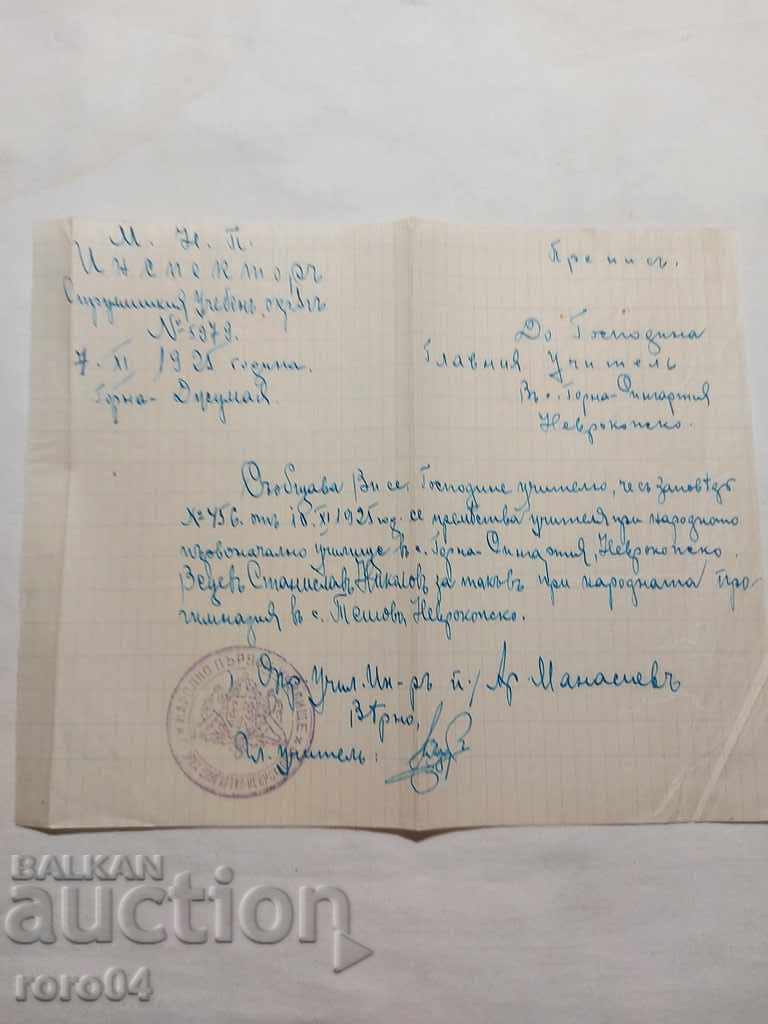 М. Н. П.
Инспекторъ
Струмишкия Учебенъ окрѫгъ
№ 5979.
7. XI 1925 година.
Горна-Джумая
Преписъ.
До Господина
Главния Учитель
Въ с. Горна-Сингартия
Неврокопско.
Съобщава Ви се Господине учителю, че съ заповѣдь
№ 456. отъ 18. XI 1925 год. се премѣства учителя при народното
първоначално училище в с. Горна-Сингартия, Неврокопско.
Станиславъ Николовъ за такъвъ при народната про-
гимназия въ с. Тешово, Неврокопско.
Окр. Учил. Ин-ръ п./ Ар Манасиевъ
Вѣрно,
Гл. учитель:
НАРОДНО ПЪРВОН
BALKAN
auction
roro04